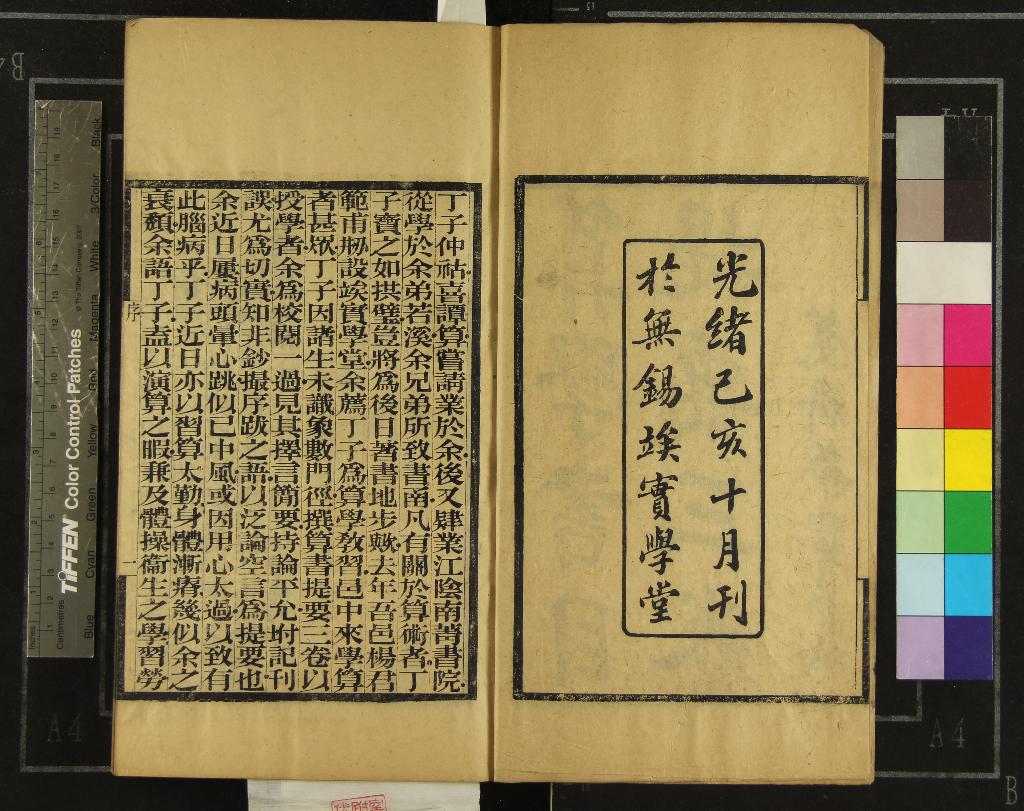 光緒己亥十月刊
於無錫竢實學堂
丁子仲祜喜譚算嘗請業於余後又肄業江陰南菁書院
從學於余弟若溪余兄弟所致書函凡有關於算術者丁
子寶之如拱璧豈將為後日著書地步歟去年吾邑楊君
範甫剏設竢實學堂余薦丁子為算學敎習邑中來學算
者甚眾丁子因諸生未識象數門徑撰算書提要二卷以
授學者余為校閱一過見其擇言簡要持論平允坿記刊
誤尤為切實知非鈔撮序跋之語以泛論空言為提要也
余近日屢病頭暈心跳似已中風或因用心太過以致有
此腦病乎丁子近日亦以習算太勤身體漸瘠幾似余之
衰頹余語丁子盍以演算之暇兼及體操衞生之學習勞
序
一
TIFFEN Color Control Patches
© The Tiffen Company, 2007
Inches
Centimetres
Blue
Cyan
Green
Yellow
Red
Magenta
White
3/Color
Black
A4
A4
B